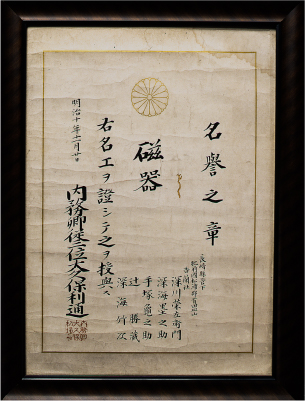 名譽之章
磁器
長崎縣管下
肥前國松浦郡有田山
香蘭社
深川榮左衛門
深海墨之助
手塚亀之助
辻勝蔵
深海竹次
右名工ヲ證シテ之ヲ授與ス
明治十年十一月廿日
内務卿従三位大久保利通